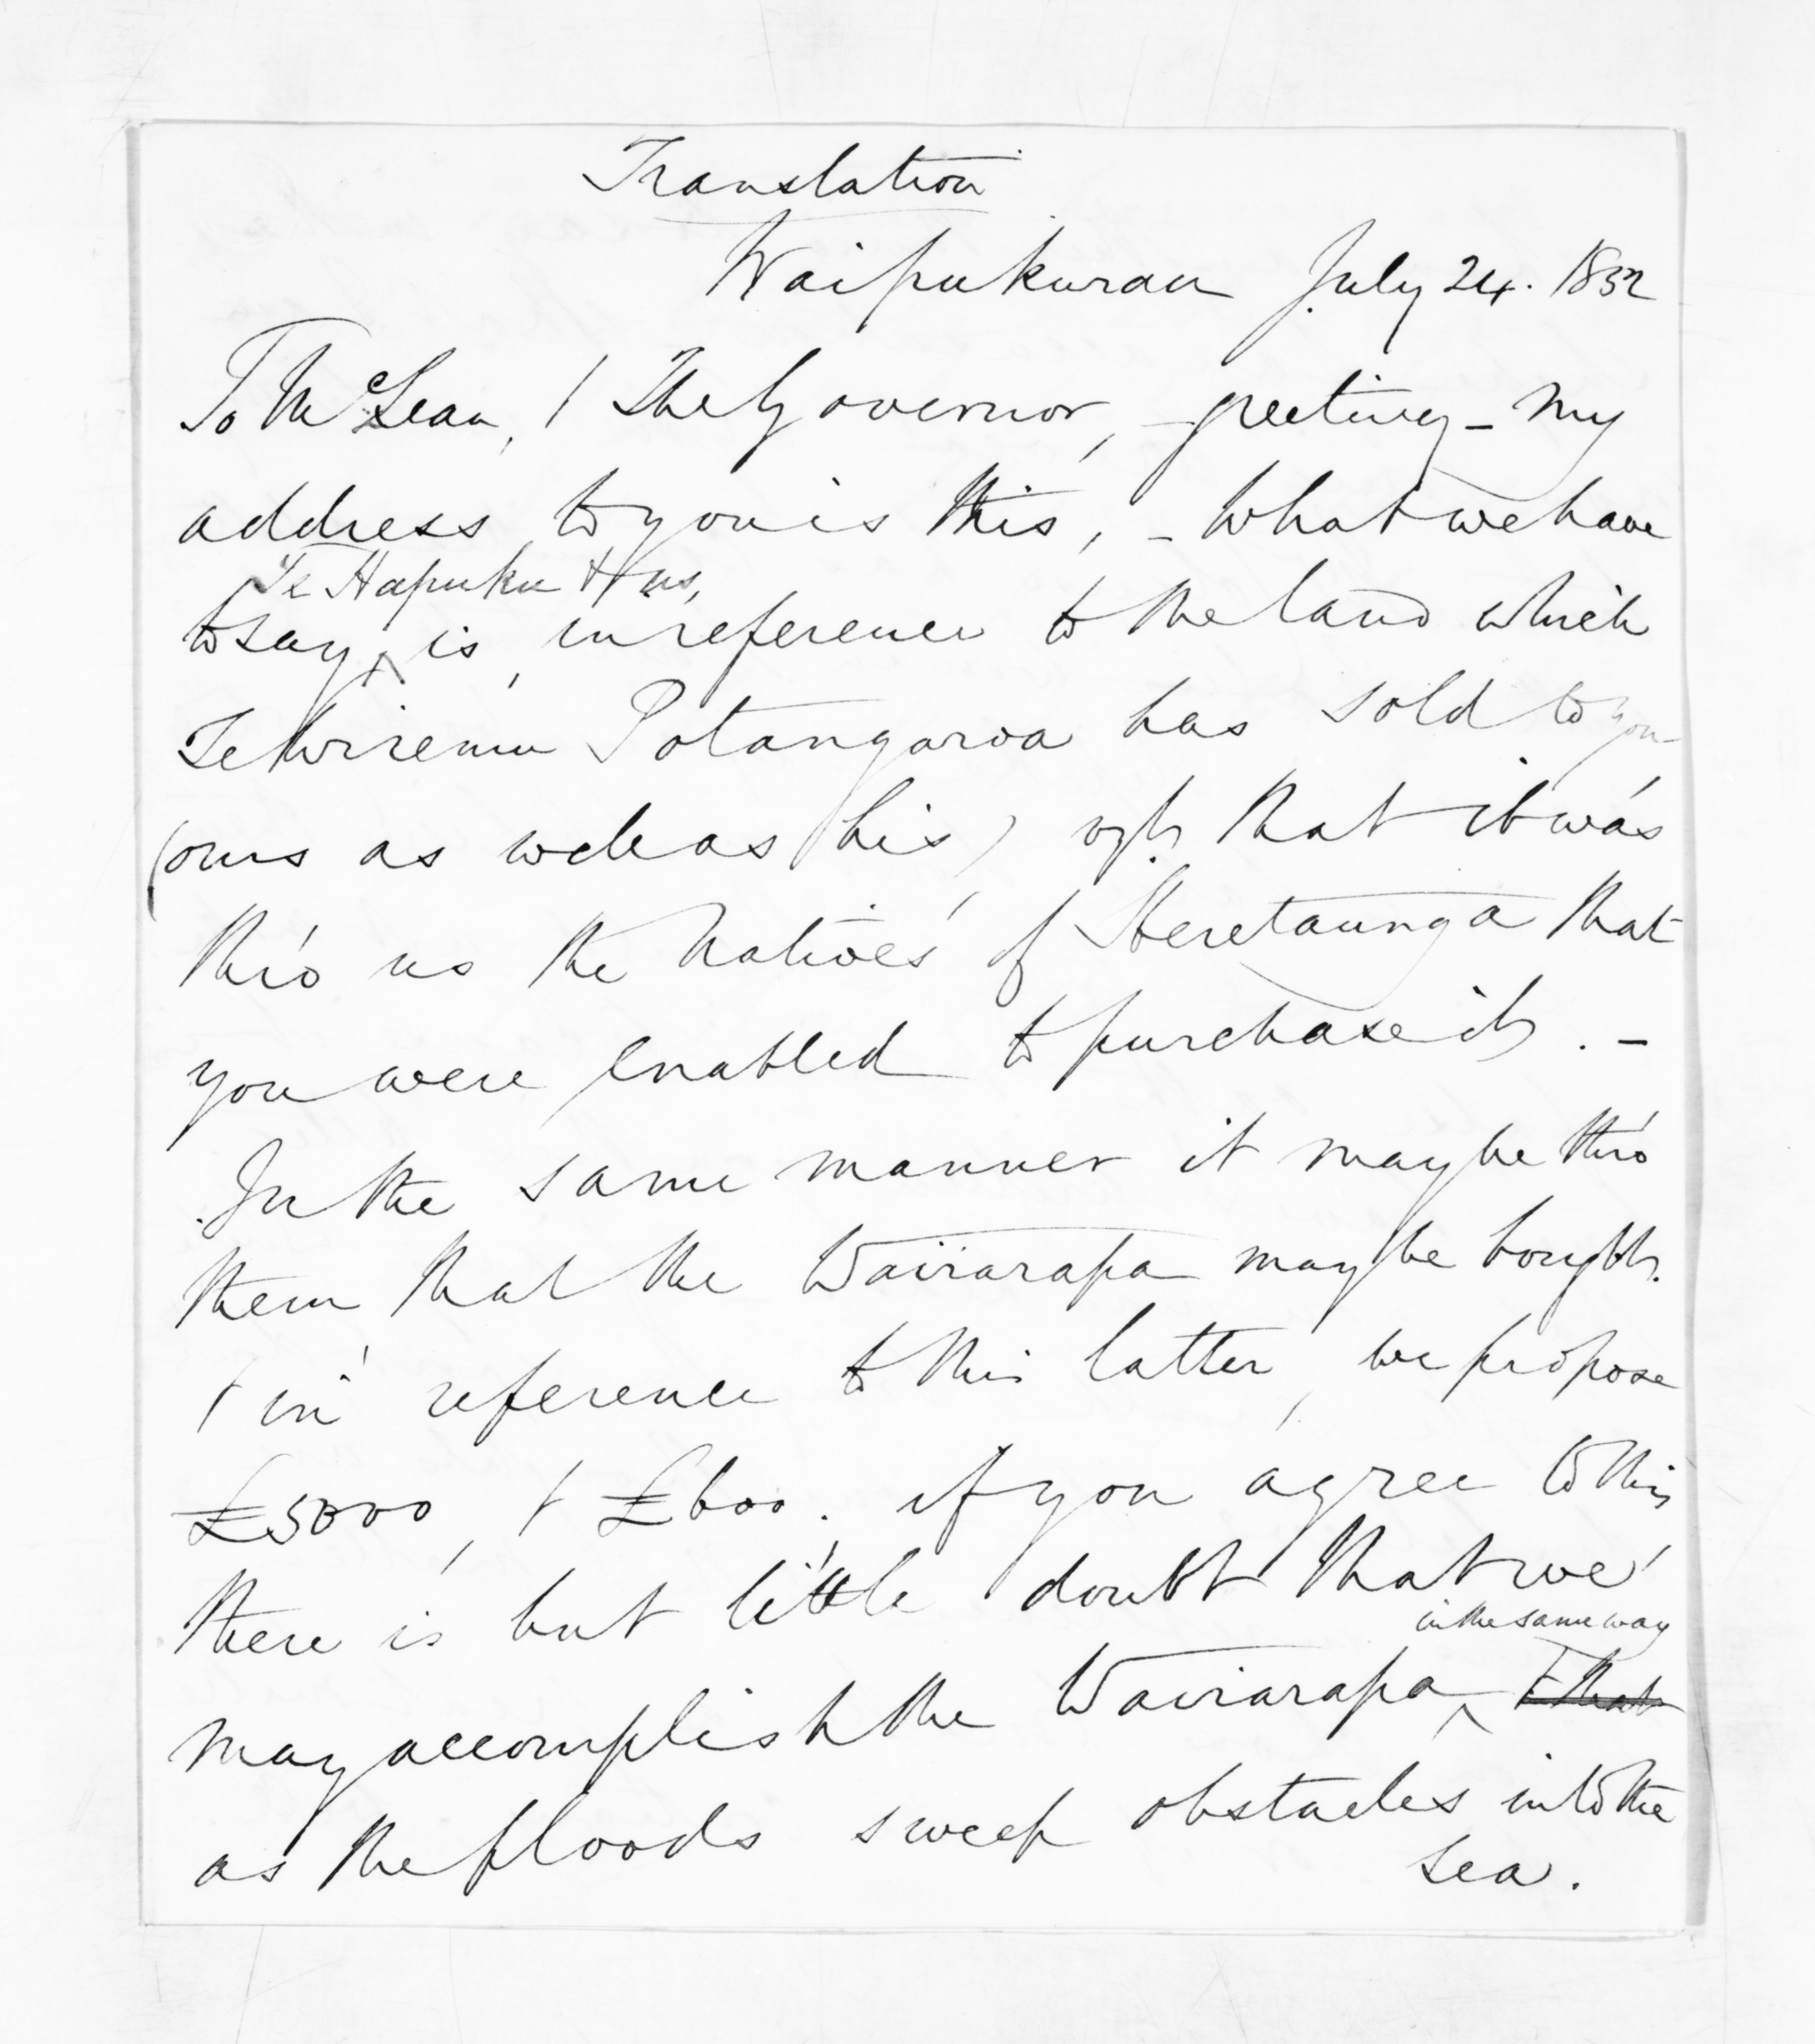 Translation
Waipukurau July 24. 1852
To McLean, & The Governor, - greeting - My
address to you is this, - What we have
Te Hapuku & us,
to say, is, in reference to the land which
Te Wiremu Potangaroa has sold to you
(ours as well as his) viz. that it was
thro' us the Natives of Heretaunga that
you were enabled to purchase it. -
In the same manner it may be thro'
them that the Wairarapa may be bought.
& in reference to this latter, we propose
£5000, & £600. if you agree to this,
there is but little doubt that we
in the same way
may accomplish the Wairarapa, & that
as the floods sweep obstacles into the
sea.